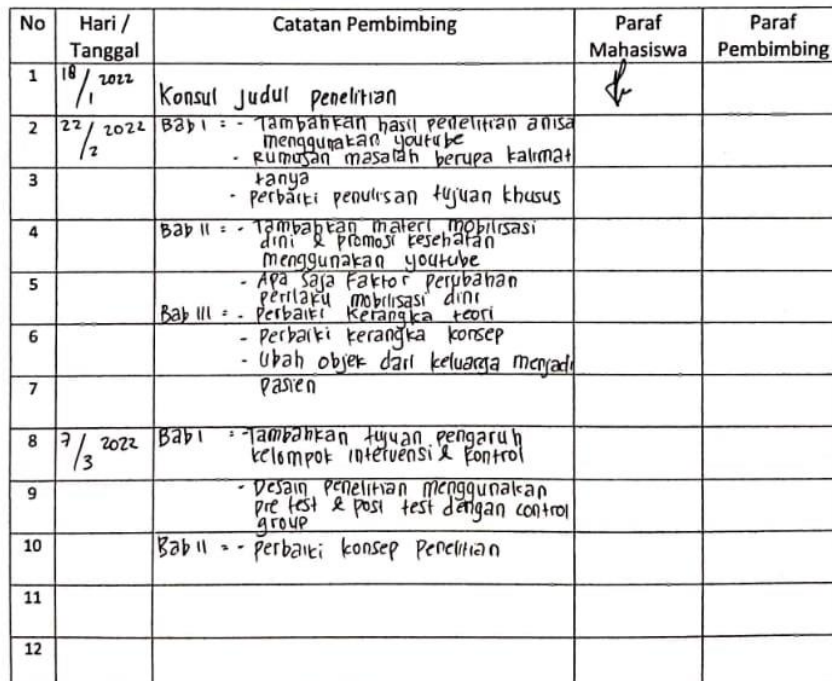 No Hari / Tanggal Catatan Pembimbing Paraf Mahasiswa Paraf Pembimbing
1 18/1 2022 Konsul Judul Penelitian
2 22/2 2022 Bab I : - Tambahkan hasil penelitian anisa
menggunakan youtube
- Rumusan masalah berupa kalimat
3 tanya
- perbaiki penulisan tujuan khusus
4 Bab II : - Tambahkan materi mobilisasi
dini & promosi kesehatan
menggunakan youtube
5 - Apa saja Faktor perubahan
perilaku mobilisasi dini
Bab III : - Perbaiki kerangka teori
6 - Perbaiki kerangka konsep
- Ubah objek dari keluarga menjadi
7 pasien
8 7/3 2022 Bab I : - Tambahkan tujuan pengaruh
kelompok intervensi & kontrol
9 - Desain Penelitian menggunakan
pre test & post test dengan control
group
10 Bab II : - perbaiki konsep Penelitian
11
12